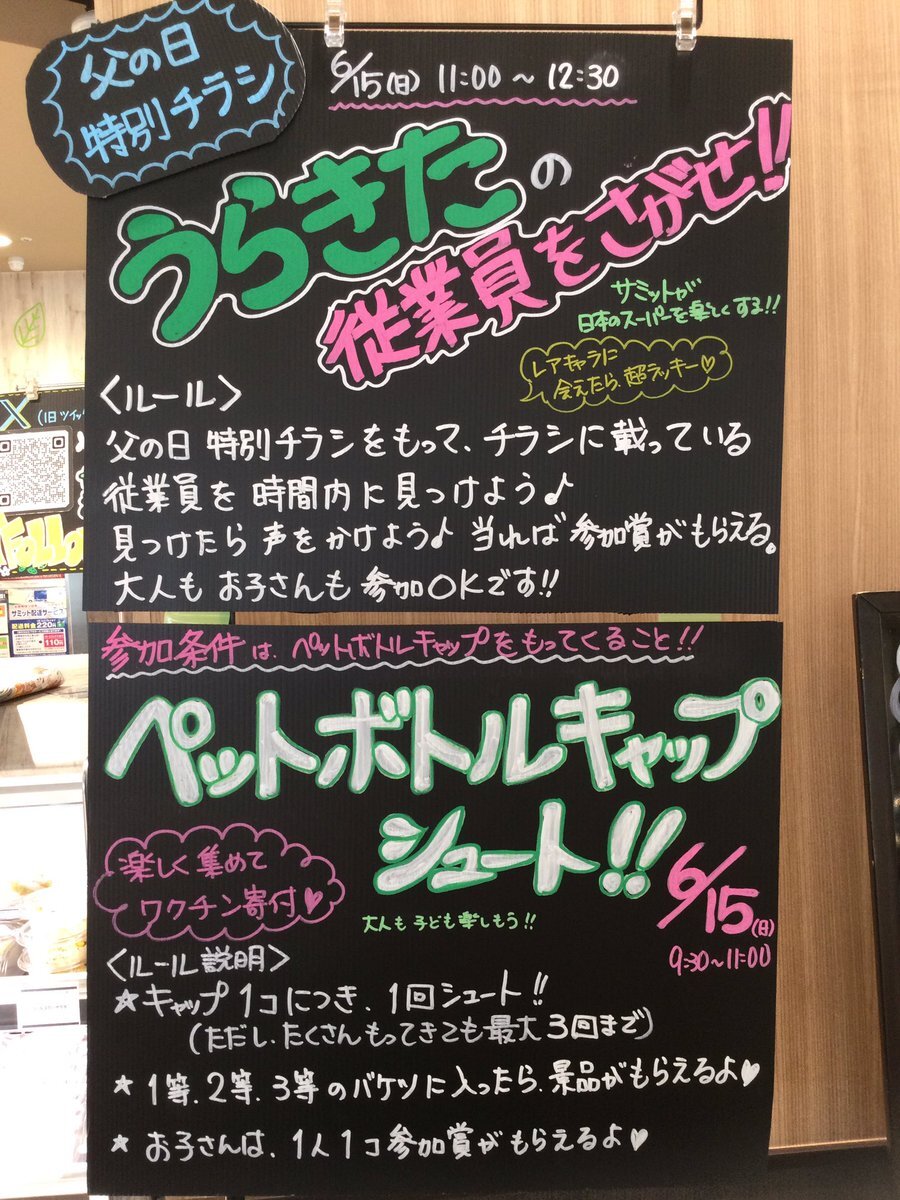 父の日
特別チラシ
6/15(日) 11:00 ~ 12:30
うらきたの
従業員をさがせ!!
サミットが
日本のスーパーを楽しくする!!
レアキャラに
会えたら、超ラッキー♡
<ルール>
父の日 特別チラシをもって、チラシに載っている
従業員を 時間内に見つけよう♪
見つけたら 声をかけよう♪ 当れば 参加賞がもらえる。
大人も お子さんも 参加OKです!!
参加条件は、ペットボトルキャップをもってくること!!
ペットボトルキャップ
シュート!!
楽しく集めて
ワクチン寄付♡
大人も子ども楽しもう!!
6/15(日)
9:30~11:00
<ルール説明>
★キャップ1コにつき、1回シュート!!
(ただし、たくさんもってきても最大3回まで)
★ 1等、2等、3等のバケツに入ったら、景品がもらえるよ♥
★ お子さんは、1人1コ参加賞がもらえるよ♥
X (旧ツイッ
サミット配達サービス
配送料金220円
110円